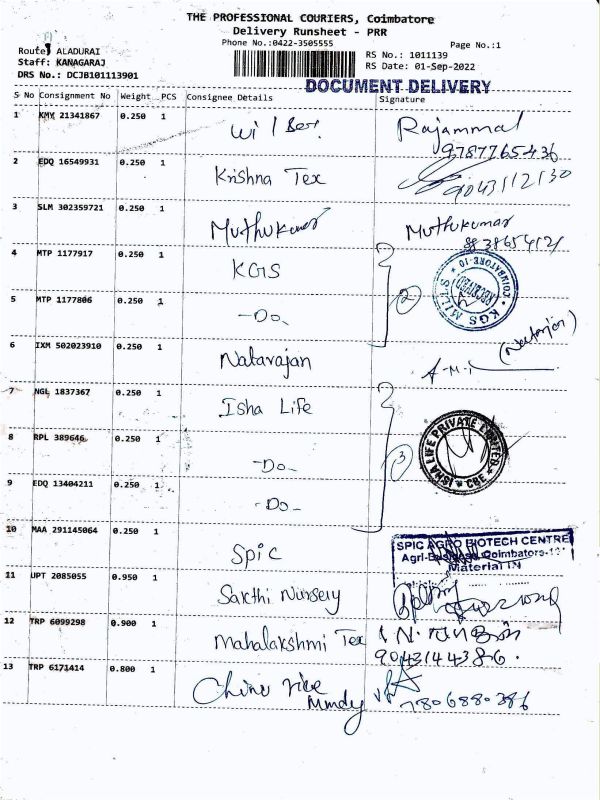 THE PROFESSIONAL COURIERS, Coimbatore
Delivery Runsheet - PRR
Phone No.:0422-3505555
Page No.:1
Route: ALADURAI
Staff: KANAGARAJ
DRS No.: DCJB101113901
RS No.: 1011139
RS Date: 01-Sep-2022
DOCUMENT DELIVERY
S No Consignment No Weight PCS Consignee Details Signature
1 KMY 21341867 0.250 1 Rajammal
9787765436
2 EDQ 16549931 0.250 1 Krishna Tex 9043112130
3 SLM 302359721 0.250 1 Muthukumar Muthukumar
4 MTP 1177917 0.250 1 KGS
COIMBATORE-10 RECEIVED KGS MILLS
2
5 MTP 1177806 0.250 1 -Do-
6 IXM 502023910 0.250 1 Natarajan (Natarajan)
7 NGL 1837367 0.250 1 Isha Life
ISHA LIFE PRIVATE LIMITED CBE
3
8 RPL 389646 0.250 1 -Do-
9 EDQ 13404211 0.250 1 -Do-
10 MAA 291145064 0.250 1 Spic
SPIC AGRO BIOTECH CENTRE
Agri-Business, Coimbatore
Material IN
11 UPT 2085055 0.950 1 Sakthi Nursery
12 TRP 6099298 0.900 1 Mahalakshmi Tex
9043144386.
13 TRP 6171414 0.800 1 Mundy 7806880386